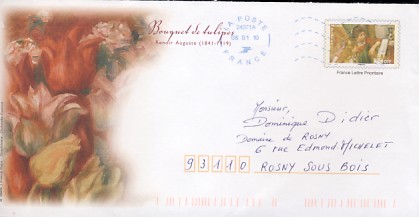 Bouquet de tulipes
Renoir Auguste (1841-1919)
LA POSTE
24371A
06 01 10
FRANCE
France Lettre Prioritaire
Monsieur,
Dominique Didier
Domaine de ROSNY
6 rue Edmond MICHELET
93110
ROSNY SOUS BOIS